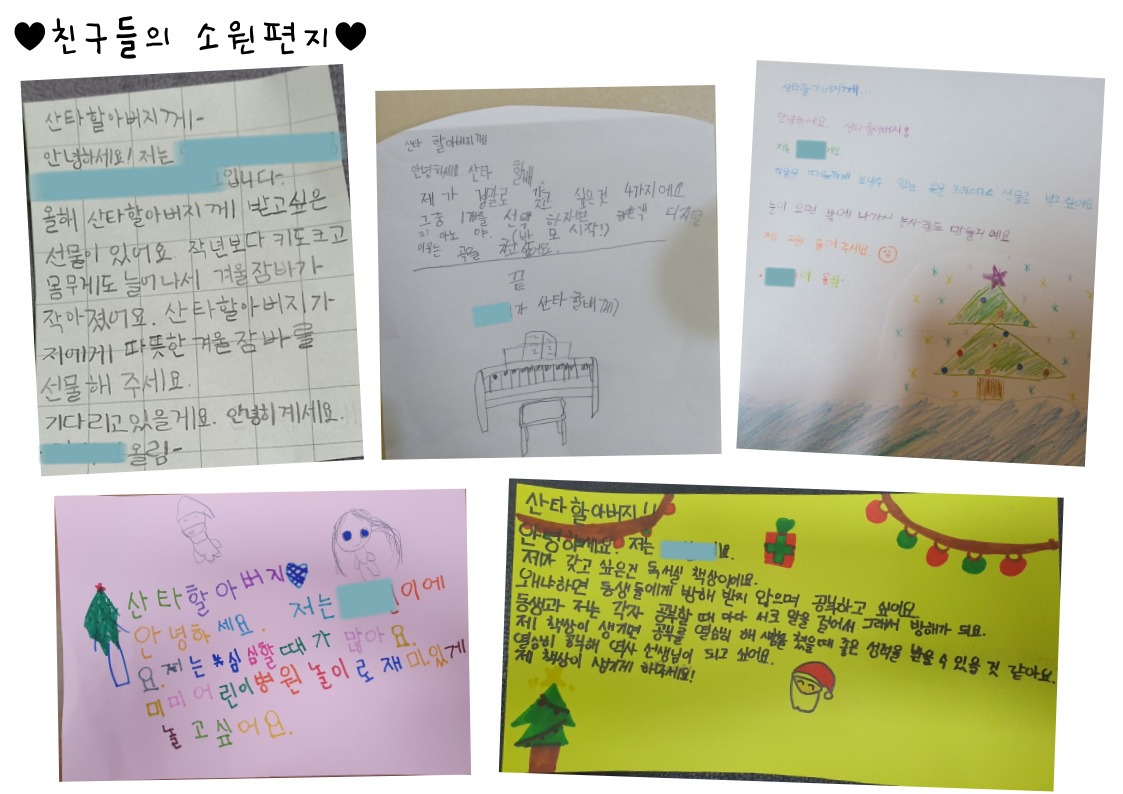 ♥친구들의 소원편지♥
산타할아버지께-
안녕하세요! 저는
입니다.
올해 산타할아버지께 받고싶은
선물이 있어요. 작년보다 키도크고
몸무게도 늘어나서 겨울잠바가
작아졌어요. 산타할아버지가
저에게 따뜻한 겨울잠바를
선물해 주세요.
기다리고있을게요. 안녕히계세요.
올림-
산타 할아버지께
안녕하세요 산타 할배
제가 정말로 갖고 싶은것 4가지에요
그중 1개를 선택 하자면 디지털
피아노 야. (반 모 시작!)
이유는 곡을 치고싶어요.
끝
가 산타 할배께)
산타할아버지께...
안녕하세요. 산타할아버지!!
저는
겨울을 따뜻하게 보낼수 있는 크리스마스 선물로 받고 싶어요
눈이 오면 밖에 나가서 눈사람도 만들거예요
제 소원 들어주세요
이 올림-
산타할아버지♥
안녕하세요. 저는 이에
요. 저는 심심할때가 많아요.
미미 어린이병원 놀이로 재미있게
놀고싶어요.
산타할아버지!!
안녕하세요. 저는 요.
제가 갖고 싶은건 독서실 책상이에요.
왜냐하면 동생들에게 방해 받지 않으며 공부하고 싶어요.
동생과 저는 각자 공부할 때 마다 서로 말을 걸어서 그래서 방해가 되요.
제 책상이 생기면 공부를 열심히 해 시험을 쳤을때 좋은 성적을 받을 수 있을 것 같아요.
열심히 공부해 역사 선생님이 되고 싶어요.
제 책상이 생기게 해주세요!